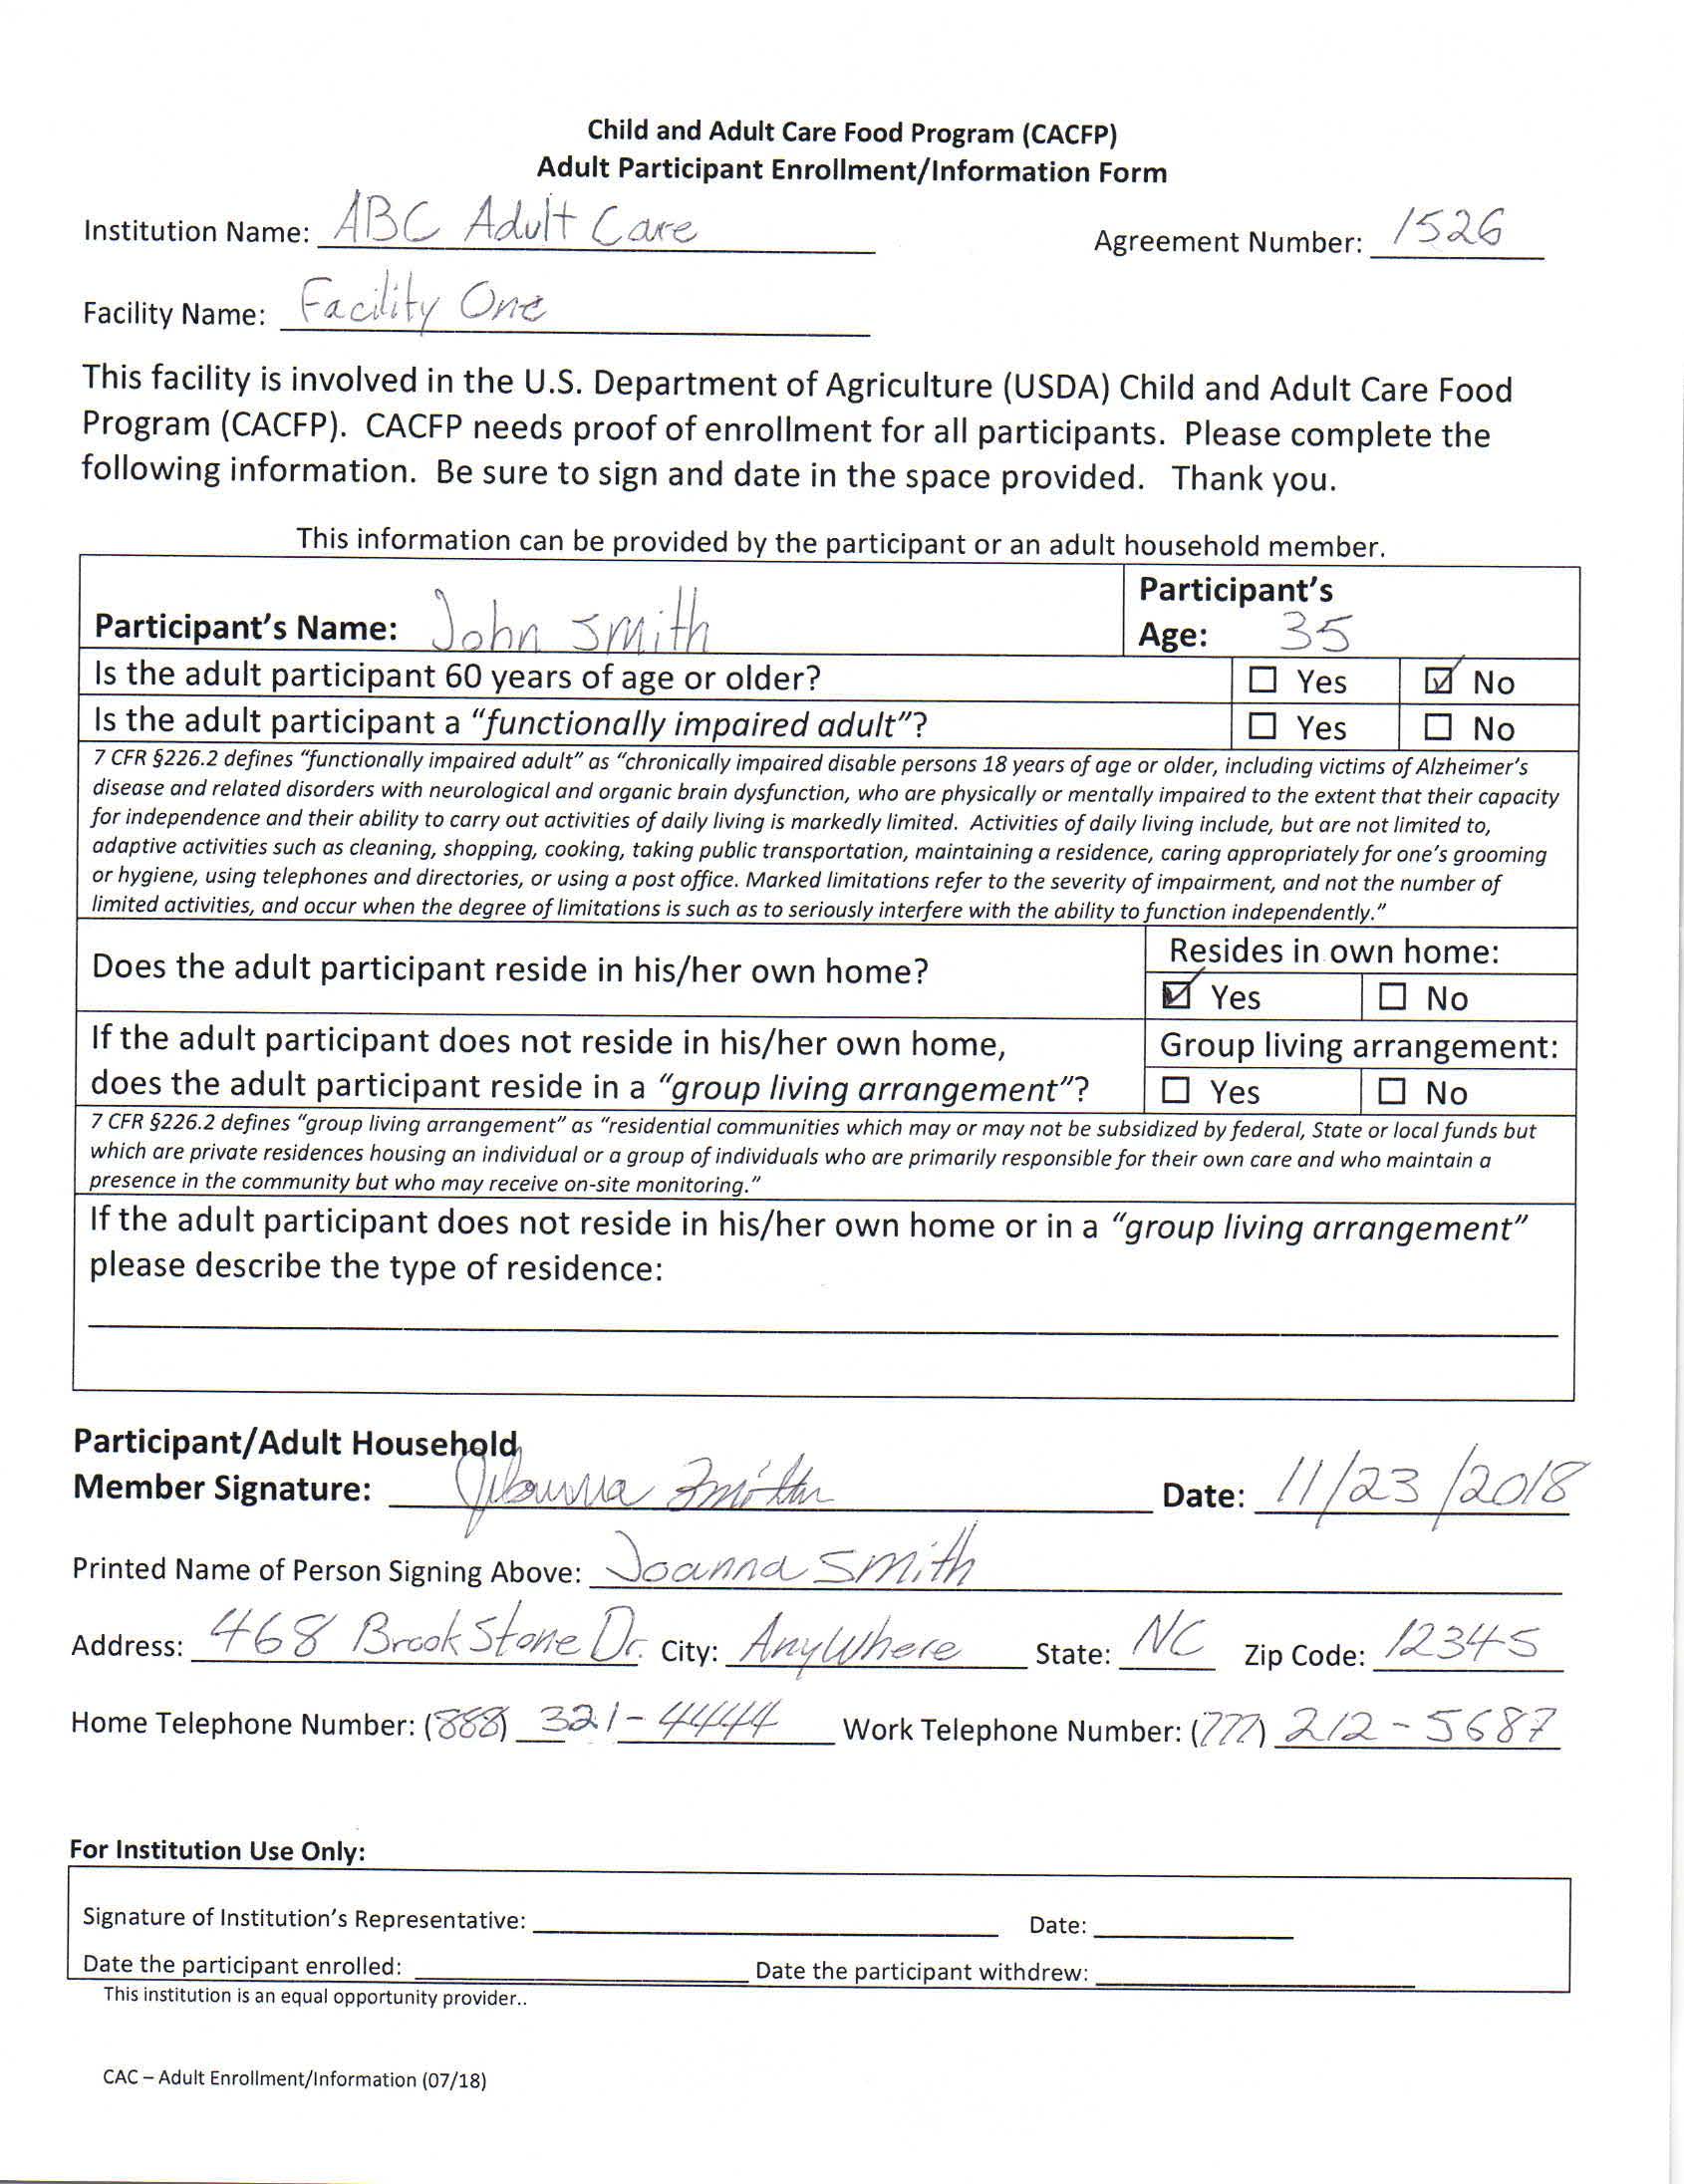 Child and Adult Care Food Program (CACFP)
Adult Participant Enrollment/Information Form
Institution Name: ABC Adult Care Agreement Number: 1526
Facility Name: Facility One
This facility is involved in the U.S. Department of Agriculture (USDA) Child and Adult Care Food
Program (CACFP). CACFP needs proof of enrollment for all participants. Please complete the
following information. Be sure to sign and date in the space provided. Thank you.
This information can be provided by the participant or an adult household member.
Participant's Name: John Smith Participant's
Age: 35
Is the adult participant 60 years of age or older? ☐ Yes ☑ No
Is the adult participant a "functionally impaired adult"? ☐ Yes ☐ No
7 CFR §226.2 defines "functionally impaired adult" as "chronically impaired disable persons 18 years of age or older, including victims of Alzheimer's
disease and related disorders with neurological and organic brain dysfunction, who are physically or mentally impaired to the extent that their capacity
for independence and their ability to carry out activities of daily living is markedly limited. Activities of daily living include, but are not limited to,
adaptive activities such as cleaning, shopping, cooking, taking public transportation, maintaining a residence, caring appropriately for one's grooming
or hygiene, using telephones and directories, or using a post office. Marked limitations refer to the severity of impairment, and not the number of
limited activities, and occur when the degree of limitations is such as to seriously interfere with the ability to function independently."
Does the adult participant reside in his/her own home? Resides in own home:
☑ Yes ☐ No
If the adult participant does not reside in his/her own home, Group living arrangement:
does the adult participant reside in a "group living arrangement"? ☐ Yes ☐ No
7 CFR §226.2 defines "group living arrangement" as "residential communities which may or may not be subsidized by federal, State or local funds but
which are private residences housing an individual or a group of individuals who are primarily responsible for their own care and who maintain a
presence in the community but who may receive on-site monitoring."
If the adult participant does not reside in his/her own home or in a "group living arrangement"
please describe the type of residence:
Participant/Adult Household
Member Signature: Johanna Smith Date: 11/23/2018
Printed Name of Person Signing Above: Joanna Smith
Address: 468 Brook Stone Dr. City: AnyWhere State: NC Zip Code: 12345
Home Telephone Number: (888) 321-4444 Work Telephone Number: (777) 212-5687
For Institution Use Only:
Signature of Institution's Representative: Date:
Date the participant enrolled: Date the participant withdrew:
This institution is an equal opportunity provider..
CAC – Adult Enrollment/Information (07/18)